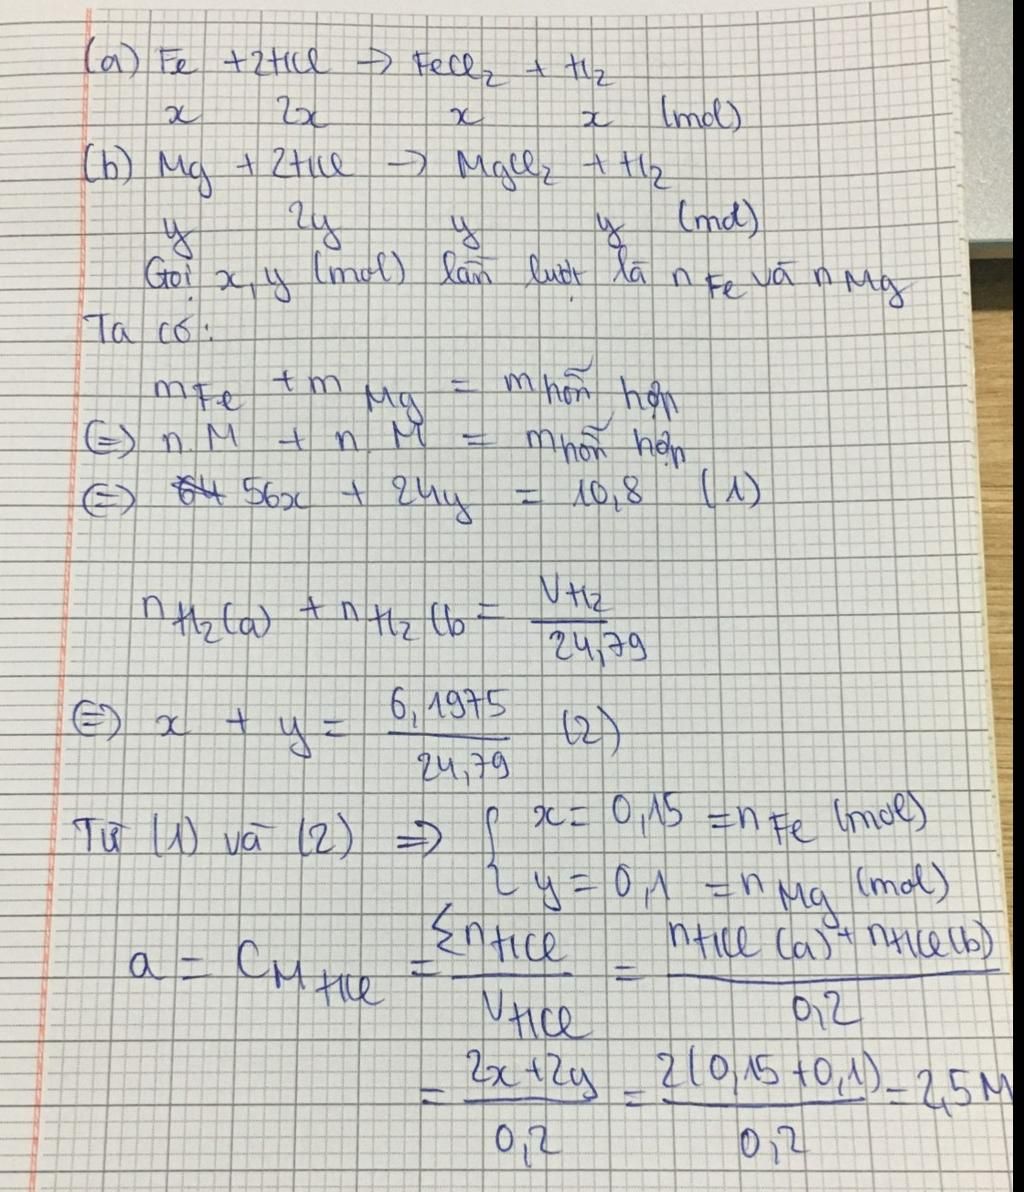 (a) Fe + 2HCl → FeCl₂ + H₂
x 2x x x (mol)
(b) Mg + 2HCl → MgCl₂ + H₂
y 2y y y (mol)
Gọi x, y (mol) lần lượt là n Fe và n Mg
Ta có:
m Fe + m Mg = m hỗn hợp
⇔ n.M + n.M = m hỗn hợp
⇔ 56x + 24y = 10,8 (1)
n H₂(a) + n H₂(b = V H₂ / 24,79
⇔ x + y = 6,1975 / 24,79 (2)
Từ (1) và (2) ⇒ { x = 0,15 = n Fe (mol)
y = 0,1 = n Mg (mol)
a = C M HCl = Σ n HCl / V HCl = n HCl (a) + n HCl (b) / 0,2
= 2x + 2y / 0,2 = 2(0,15 + 0,1) / 0,2 = 2,5 M